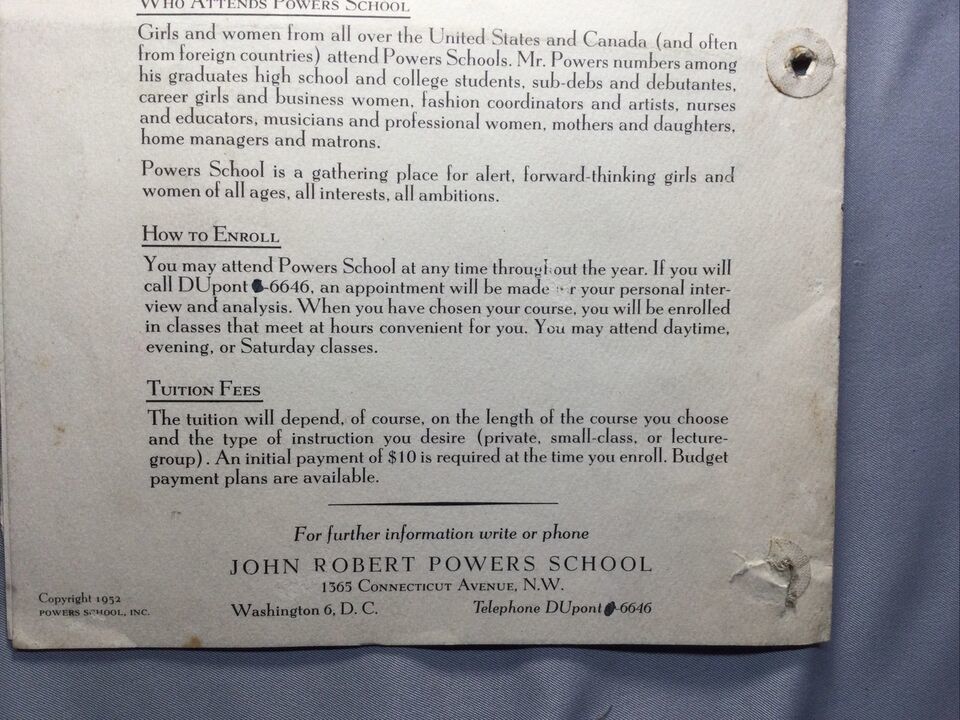 WHO ATTENDS POWERS SCHOOL
Girls and women from all over the United States and Canada (and often
from foreign countries) attend Powers Schools. Mr. Powers numbers among
his graduates high school and college students, sub-debs and debutantes,
career girls and business women, fashion coordinators and artists, nurses
and educators, musicians and professional women, mothers and daughters,
home managers and matrons.
Powers School is a gathering place for alert, forward-thinking girls and
women of all ages, all interests, all ambitions.
HOW TO ENROLL
You may attend Powers School at any time throughout the year. If you will
call DUpont -6646, an appointment will be made for your personal inter-
view and analysis. When you have chosen your course, you will be enrolled
in classes that meet at hours convenient for you. You may attend daytime,
evening, or Saturday classes.
TUITION FEES
The tuition will depend, of course, on the length of the course you choose
and the type of instruction you desire (private, small-class, or lecture-
group). An initial payment of $10 is required at the time you enroll. Budget
payment plans are available.
For further information write or phone
JOHN ROBERT POWERS SCHOOL
1365 CONNECTICUT AVENUE, N.W.
Washington 6, D. C. Telephone DUpont -6646
Copyright 1952
POWERS SCHOOL, INC.